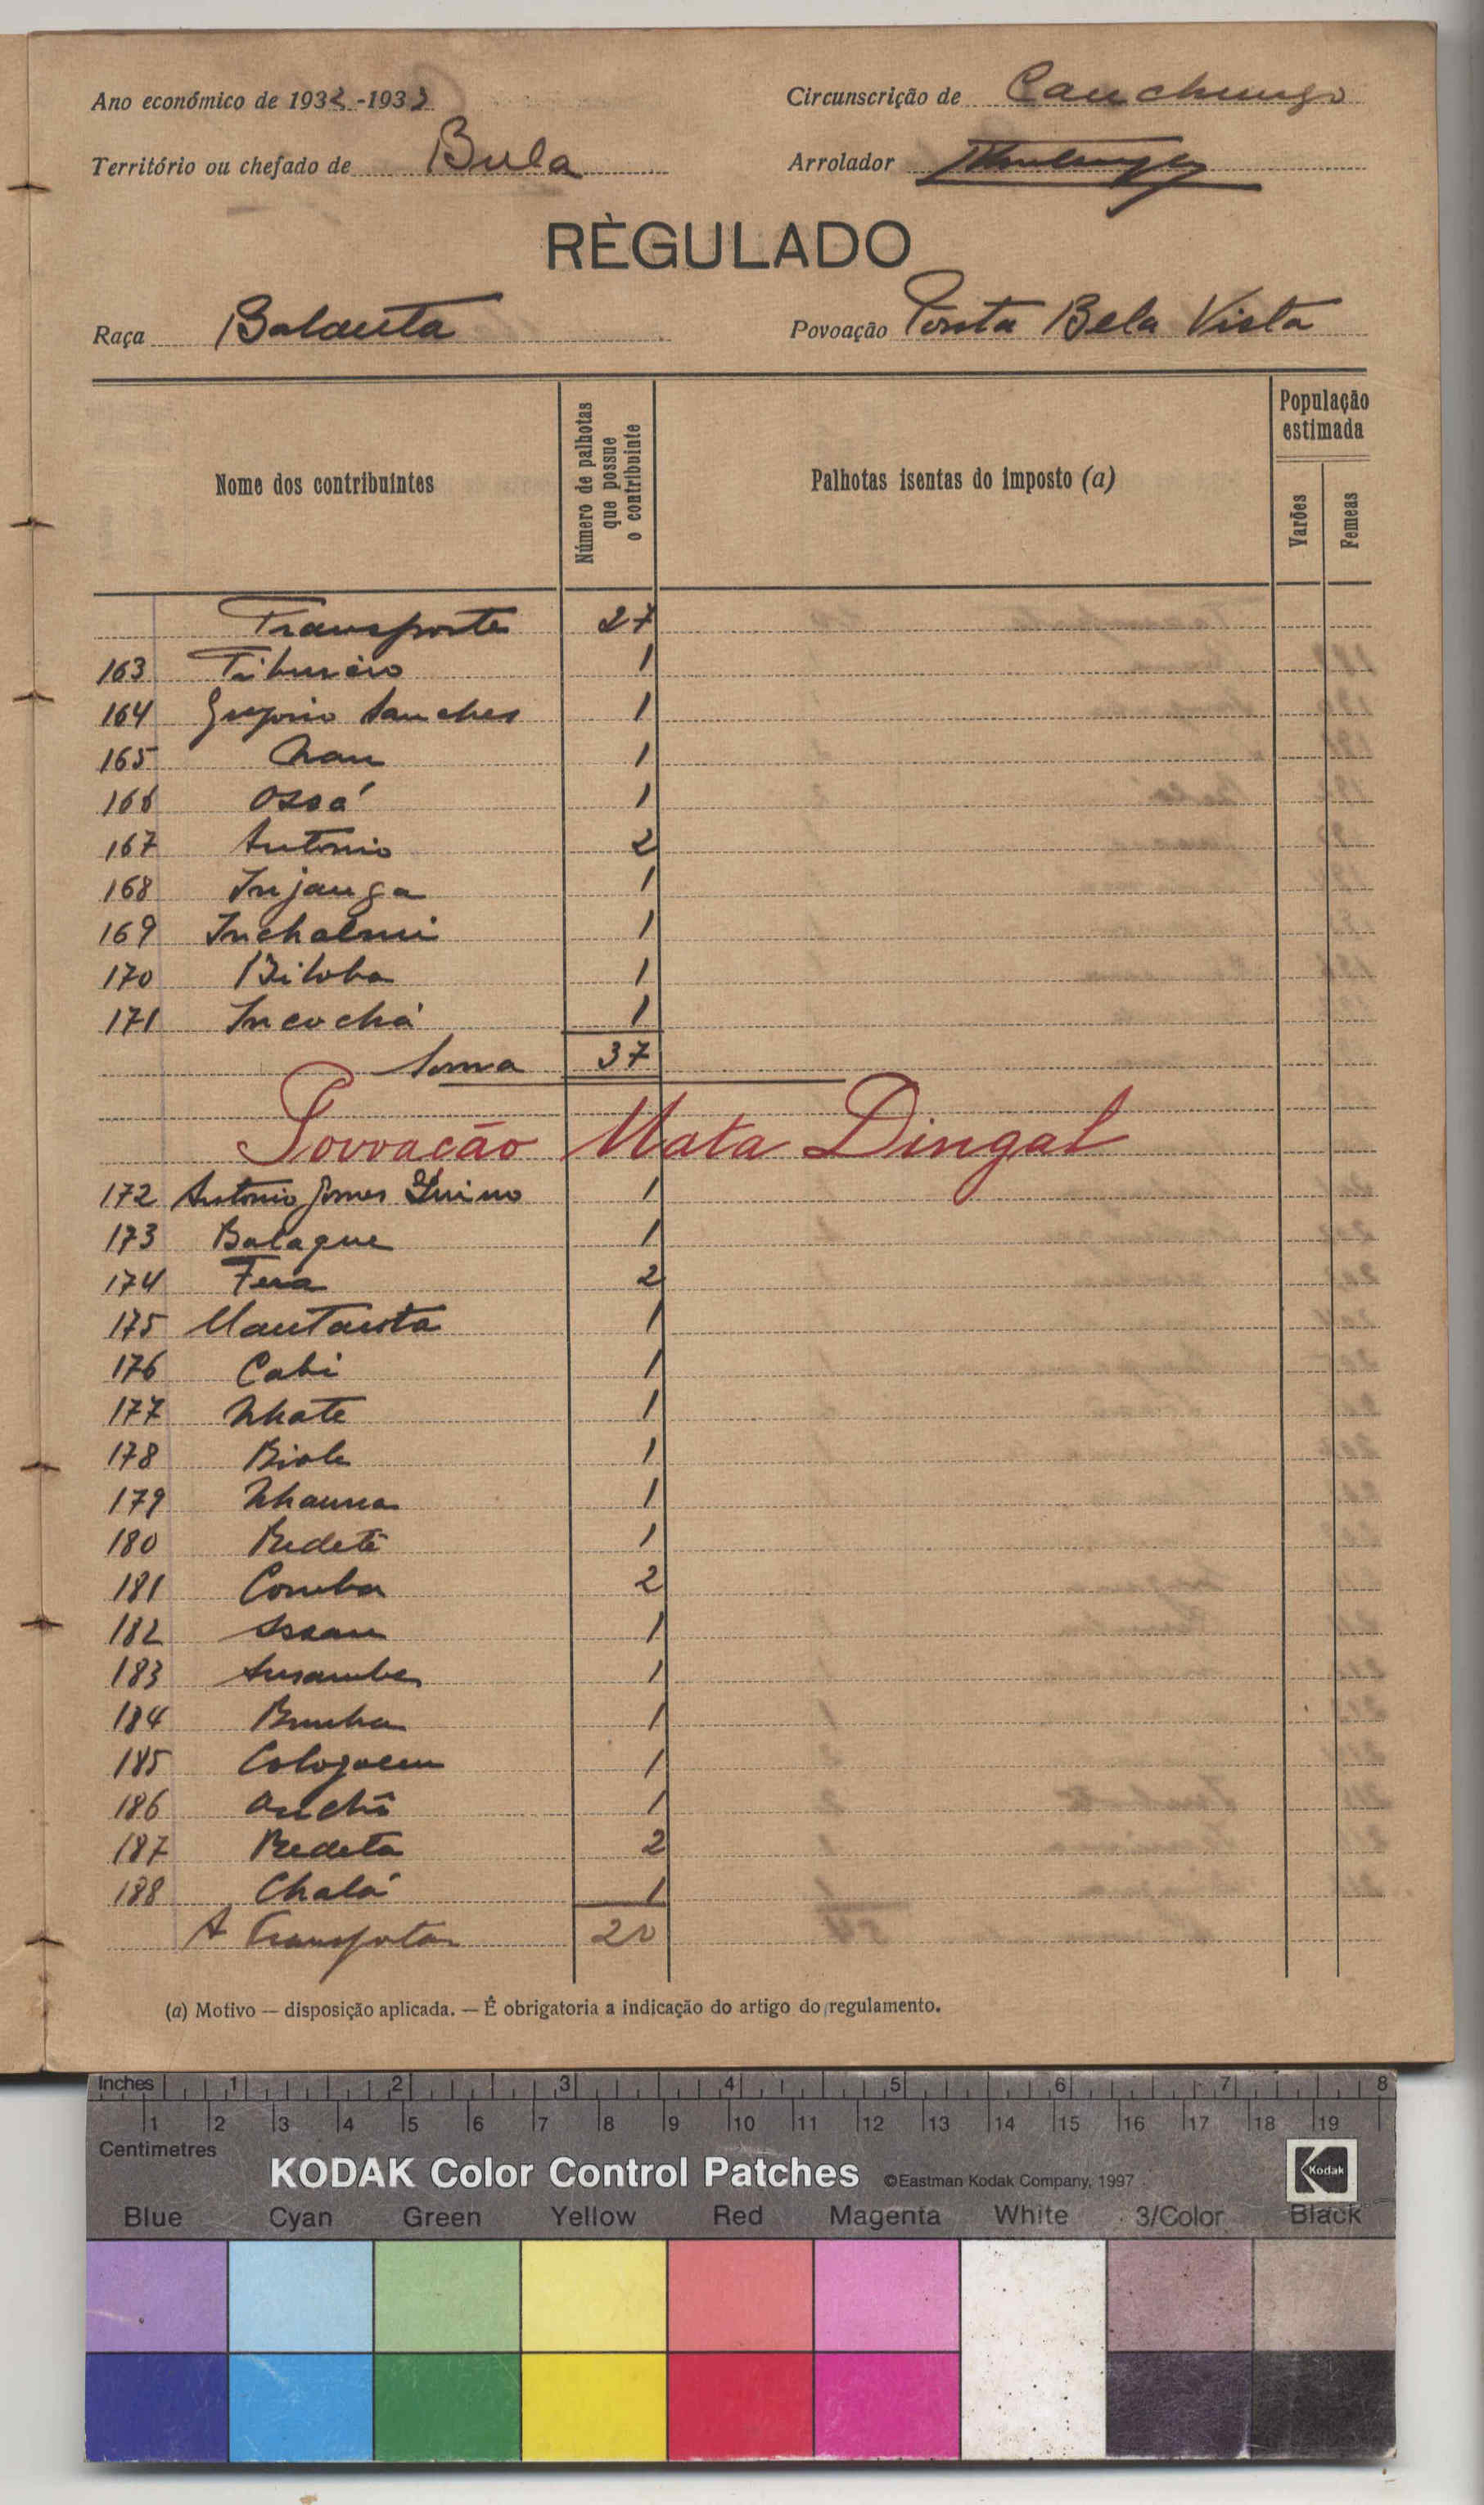 Ano económico de 1932-1933
Circunscrição de Canchungo
Território ou chefado de Bula
Arrolador
RÈGULADO
Raça Balanta
Povoação Ponta Bela Vista
Nome dos contribuintes
Número de palhotas que possue o contribuinte
Palhotas isentas do imposto (a)
População estimada
Varões
Femeas
Transporte 27
163 Tiburcio 1
164 Gregorio Sanches 1
165 Nan 1
166 Ossá 1
167 Antonio 2
168 Injanga 1
169 Inchalmi 1
170 Bitoba 1
171 Incochá 1
Soma 37
Povoação Mata Dingal
172 Antonio Gomes 1
173 Balaque 1
174 Fera 2
175 1
176 Cabi 1
177 Nhate 1
178 Biole 1
179 Nhauna 1
180 Bedetê 1
181 Comba 2
182 Assau 1
183 1
184 1
185 1
186 Anchô 1
187 Bedeta 2
188 Chalá 1
A Transportar 20
(a) Motivo — disposição aplicada. — É obrigatoria a indicação do artigo do regulamento.
Inches 1 2 3 4 5 6 7 8
1 2 3 4 5 6 7 8 9 10 11 12 13 14 15 16 17 18 19
Centimetres
KODAK Color Control Patches ©Eastman Kodak Company, 1997
Kodak
Blue Cyan Green Yellow Red Magenta White 3/Color Black